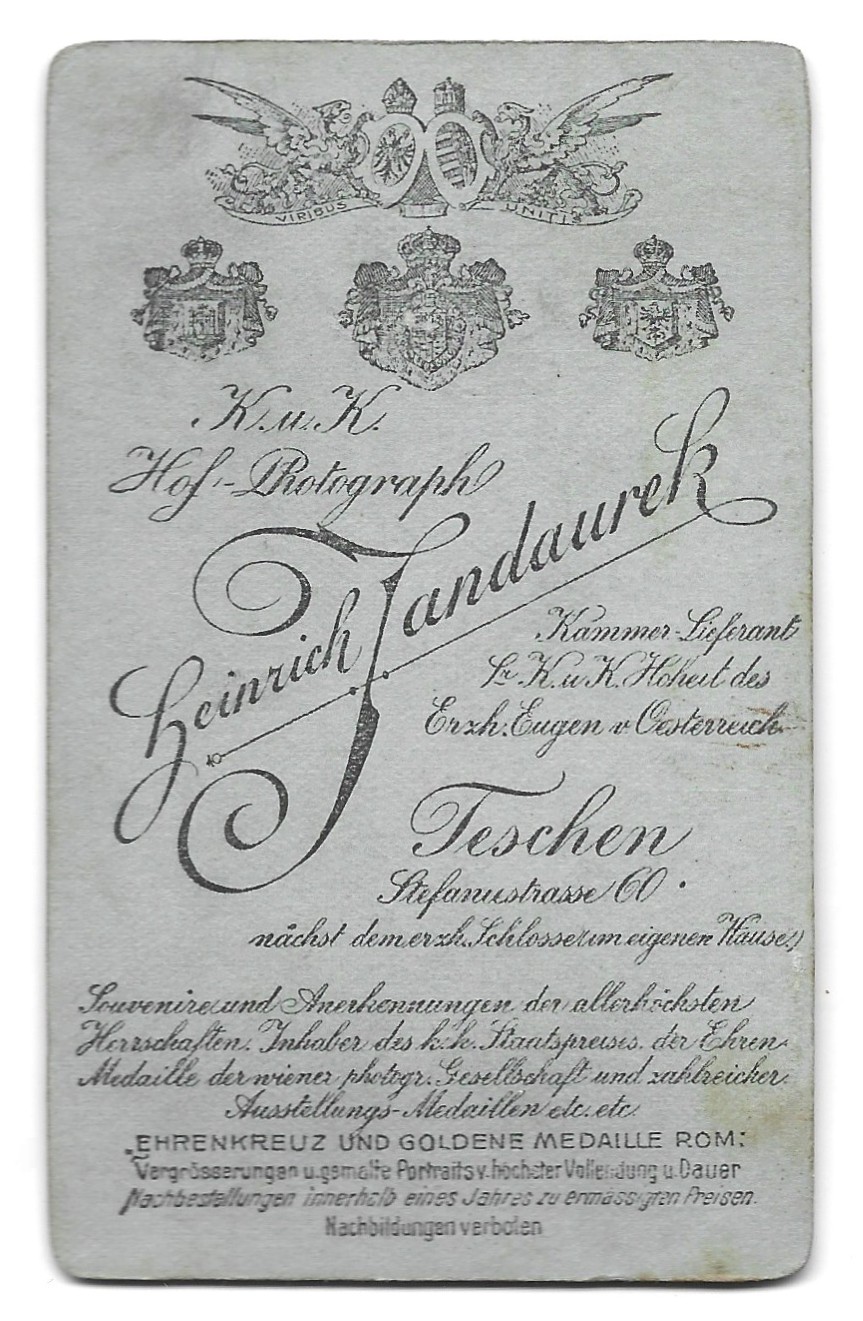 VIRIBUS UNITIS
K. u. K.
Hof-Photograph
Heinrich Jandaurek
Kammer-Lieferant
Sr. K. u. K. Hoheit des
Erzh. Eugen v. Oesterreich
Teschen
Stefaniestrasse 60.
nächst dem erzh. Schlosse im eigenen Hause)
Souvenire und Anerkennungen der allerhöchsten
Herrschaften. Inhaber des k. k. Staatspreises, der Ehren-
Medaille der wiener photogr. Gesellschaft und zahlreicher
Ausstellungs-Medaillen etc. etc.
„EHRENKREUZ UND GOLDENE MEDAILLE ROM."
Vergrösserungen u. gemalte Portraits v. höchster Vollendung u. Dauer
Nachbestellungen innerhalb eines Jahres zu ermässigten Preisen.
Nachbildungen verboten